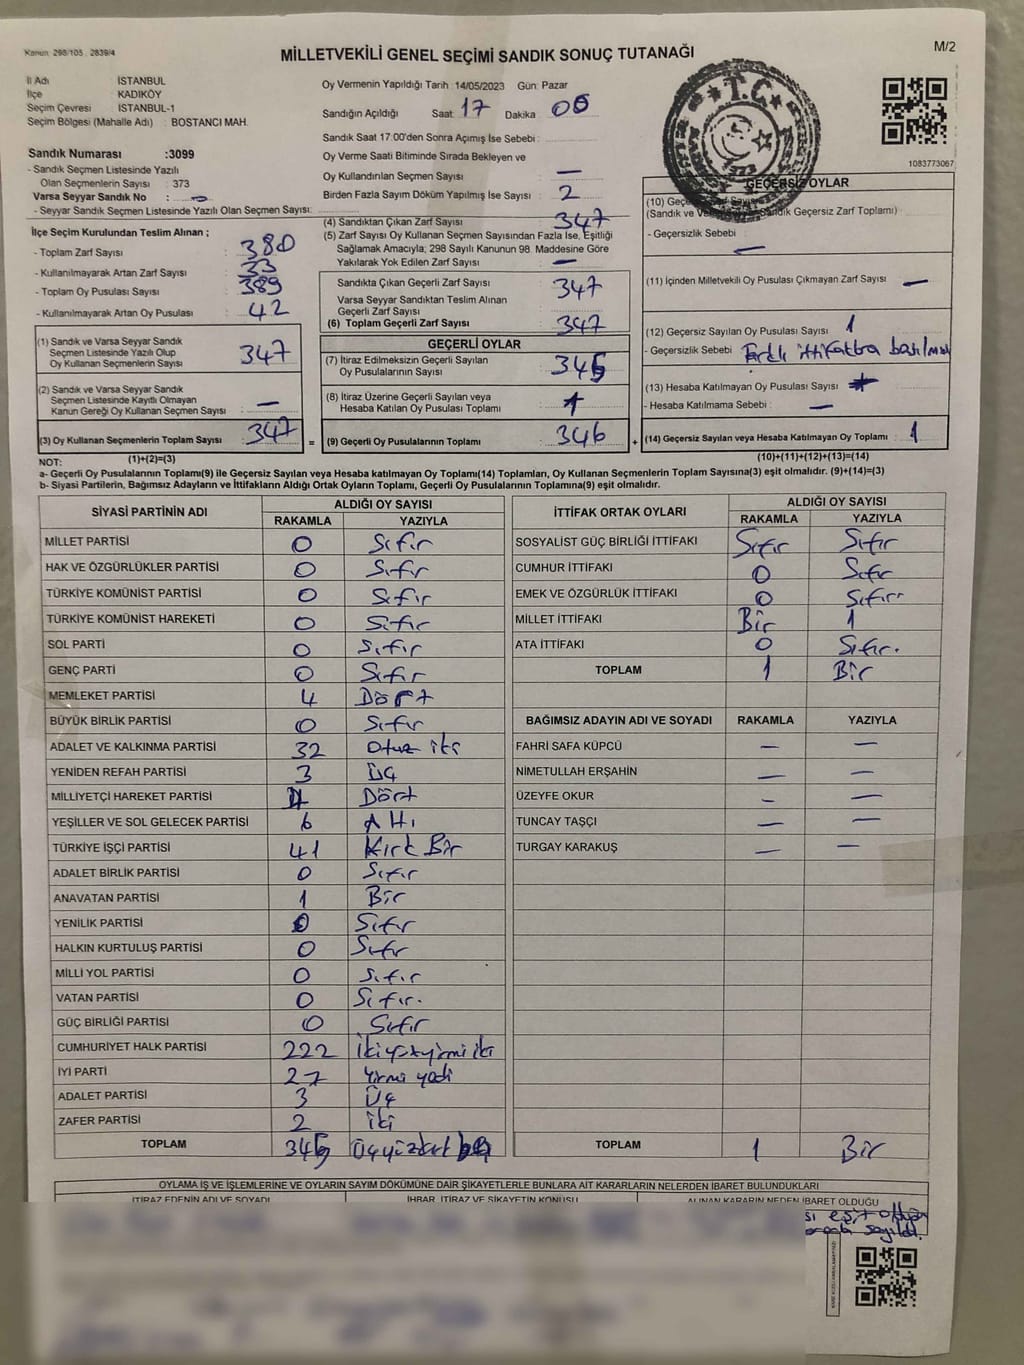 Kanun: 298/105 2839/4
MİLLETVEKİLİ GENEL SEÇİMİ SANDIK SONUÇ TUTANAĞI
M/2
İl Adı İSTANBUL
İlçe KADIKÖY
Seçim Çevresi İSTANBUL-1
Seçim Bölgesi (Mahalle Adı) : BOSTANCI MAH.
Sandık Numarası :3099
- Sandık Seçmen Listesinde Yazılı
Olan Seçmenlerin Sayısı : 373
Varsa Seyyar Sandık No : -
- Seyyar Sandık Seçmen Listesinde Yazılı Olan Seçmen Sayısı:
Oy Vermenin Yapıldığı Tarih :14/05/2023 Gün: Pazar
Sandığın Açıldığı Saat: 17 Dakika 00
Sandık Saat 17.00'den Sonra Açımış İse Sebebi :
Oy Verme Saati Bitiminde Sırada Bekleyen ve
Oy Kullandırılan Seçmen Sayısı : —
Birden Fazla Sayım Döküm Yapılmış İse Sayısı : 2
T.C.
1083773067
İlçe Seçim Kurulundan Teslim Alınan ;
- Toplam Zarf Sayısı : 380
- Kullanılmayarak Artan Zarf Sayısı : 33
- Toplam Oy Pusulası Sayısı : 389
- Kullanılmayarak Artan Oy Pusulası : 42
(1) Sandık ve Varsa Seyyar Sandık
Seçmen Listesinde Yazılı Olup
Oy Kullanan Seçmenlerin Sayısı : 347
(2) Sandık ve Varsa Seyyar Sandık
Seçmen Listesinde Kayıtlı Olmayan
Kanun Gereği Oy Kullanan Seçmen Sayısı : —
(3) Oy Kullanan Seçmenlerin Toplam Sayısı : 347
(1)+(2)=(3)
(4) Sandıktan Çıkan Zarf Sayısı : 347
(5) Zarf Sayısı Oy Kullanan Seçmen Sayısından Fazla İse, Eşitliği
Sağlamak Amacıyla; 298 Sayılı Kanunun 98. Maddesine Göre
Yakılarak Yok Edilen Zarf Sayısı : —
Sandıkta Çıkan Geçerli Zarf Sayısı : 347
Varsa Seyyar Sandıktan Teslim Alınan
Geçerli Zarf Sayısı :
(6) Toplam Geçerli Zarf Sayısı : 347
GEÇERLİ OYLAR
(7) İtiraz Edilmeksizin Geçerli Sayılan
Oy Pusulalarının Sayısı : 345
(8) İtiraz Üzerine Geçerli Sayılan veya
Hesaba Katılan Oy Pusulası Toplamı : 1
= (9) Geçerli Oy Pusulalarının Toplamı : 346
GEÇERSİZ OYLAR
- Geçersizlik Sebebi : —
(11) İçinden Milletvekili Oy Pusulası Çıkmayan Zarf Sayısı : —
(12) Geçersiz Sayılan Oy Pusulası Sayısı : 1
- Geçersizlik Sebebi : Farklı ittifakta basılması
(13) Hesaba Katılmayan Oy Pusulası Sayısı :
- Hesaba Katılmama Sebebi : —
+ (14) Geçersiz Sayılan veya Hesaba Katılmayan Oy Toplamı : 1
(10)+(11)+(12)+(13)=(14)
NOT:
a- Geçerli Oy Pusulalarının Toplamı(9) ile Geçersiz Sayılan veya Hesaba katılmayan Oy Toplamı(14) Toplamları, Oy Kullanan Seçmenlerin Toplam Sayısına(3) eşit olmalıdır. (9)+(14)=(3)
b- Siyasi Partilerin, Bağımsız Adayların ve İttifakların Aldığı Ortak Oyların Toplamı, Geçerli Oy Pusulalarının Toplamına(9) eşit olmalıdır.
SİYASİ PARTİNİN ADI ALDIĞI OY SAYISI
RAKAMLA YAZIYLA
MİLLET PARTİSİ 0 Sıfır
HAK VE ÖZGÜRLÜKLER PARTİSİ 0 Sıfır
TÜRKİYE KOMÜNİST PARTİSİ 0 Sıfır
TÜRKİYE KOMÜNİST HAREKETİ 0 Sıfır
SOL PARTİ 0 Sıfır
GENÇ PARTİ 0 Sıfır
MEMLEKET PARTİSİ 4 Dört
BÜYÜK BİRLİK PARTİSİ 0 Sıfır
ADALET VE KALKINMA PARTİSİ 32 Otuz iki
YENİDEN REFAH PARTİSİ 3 Üç
MİLLİYETÇİ HAREKET PARTİSİ 4 Dört
YEŞİLLER VE SOL GELECEK PARTİSİ 6 Altı
TÜRKİYE İŞÇİ PARTİSİ 41 Kırk Bir
ADALET BİRLİK PARTİSİ 0 Sıfır
ANAVATAN PARTİSİ 1 Bir
YENİLİK PARTİSİ 0 Sıfır
HALKIN KURTULUŞ PARTİSİ 0 Sıfır
MİLLİ YOL PARTİSİ 0 Sıfır
VATAN PARTİSİ 0 Sıfır.
GÜÇ BİRLİĞİ PARTİSİ 0 Sıfır
CUMHURİYET HALK PARTİSİ 222 İkiyüzyirmi iki
İYİ PARTİ 27 Yirmi yedi
ADALET PARTİSİ 3 Üç
ZAFER PARTİSİ 2 İki
TOPLAM 345 Üçyüzkırk
İTTİFAK ORTAK OYLARI ALDIĞI OY SAYISI
RAKAMLA YAZIYLA
SOSYALİST GÜÇ BİRLİĞİ İTTİFAKI Sıfır Sıfır
CUMHUR İTTİFAKI 0 Sıfır
EMEK VE ÖZGÜRLÜK İTTİFAKI 0 Sıfır
MİLLET İTTİFAKI Bir 1
ATA İTTİFAKI 0 Sıfır.
TOPLAM 1 Bir
BAĞIMSIZ ADAYIN ADI VE SOYADI RAKAMLA YAZIYLA
FAHRİ SAFA KÜPCÜ — —
NİMETULLAH ERŞAHİN — —
ÜZEYFE OKUR — —
TUNCAY TAŞÇI — —
TURGAY KARAKUŞ — —
TOPLAM 1 Bir
OYLAMA İŞ VE İŞLEMLERİNE VE OYLARIN SAYIM DÖKÜMÜNE DAİR ŞİKAYETLERLE BUNLARA AİT KARARLARIN NELERDEN İBARET BULUNDUKLARI
İTİRAZ EDENİN ADI VE SOYADI İHBAR, İTİRAZ VE ŞİKAYETİN KONUSU ALINAN KARARIN NEDEN İBARET OLDUĞU